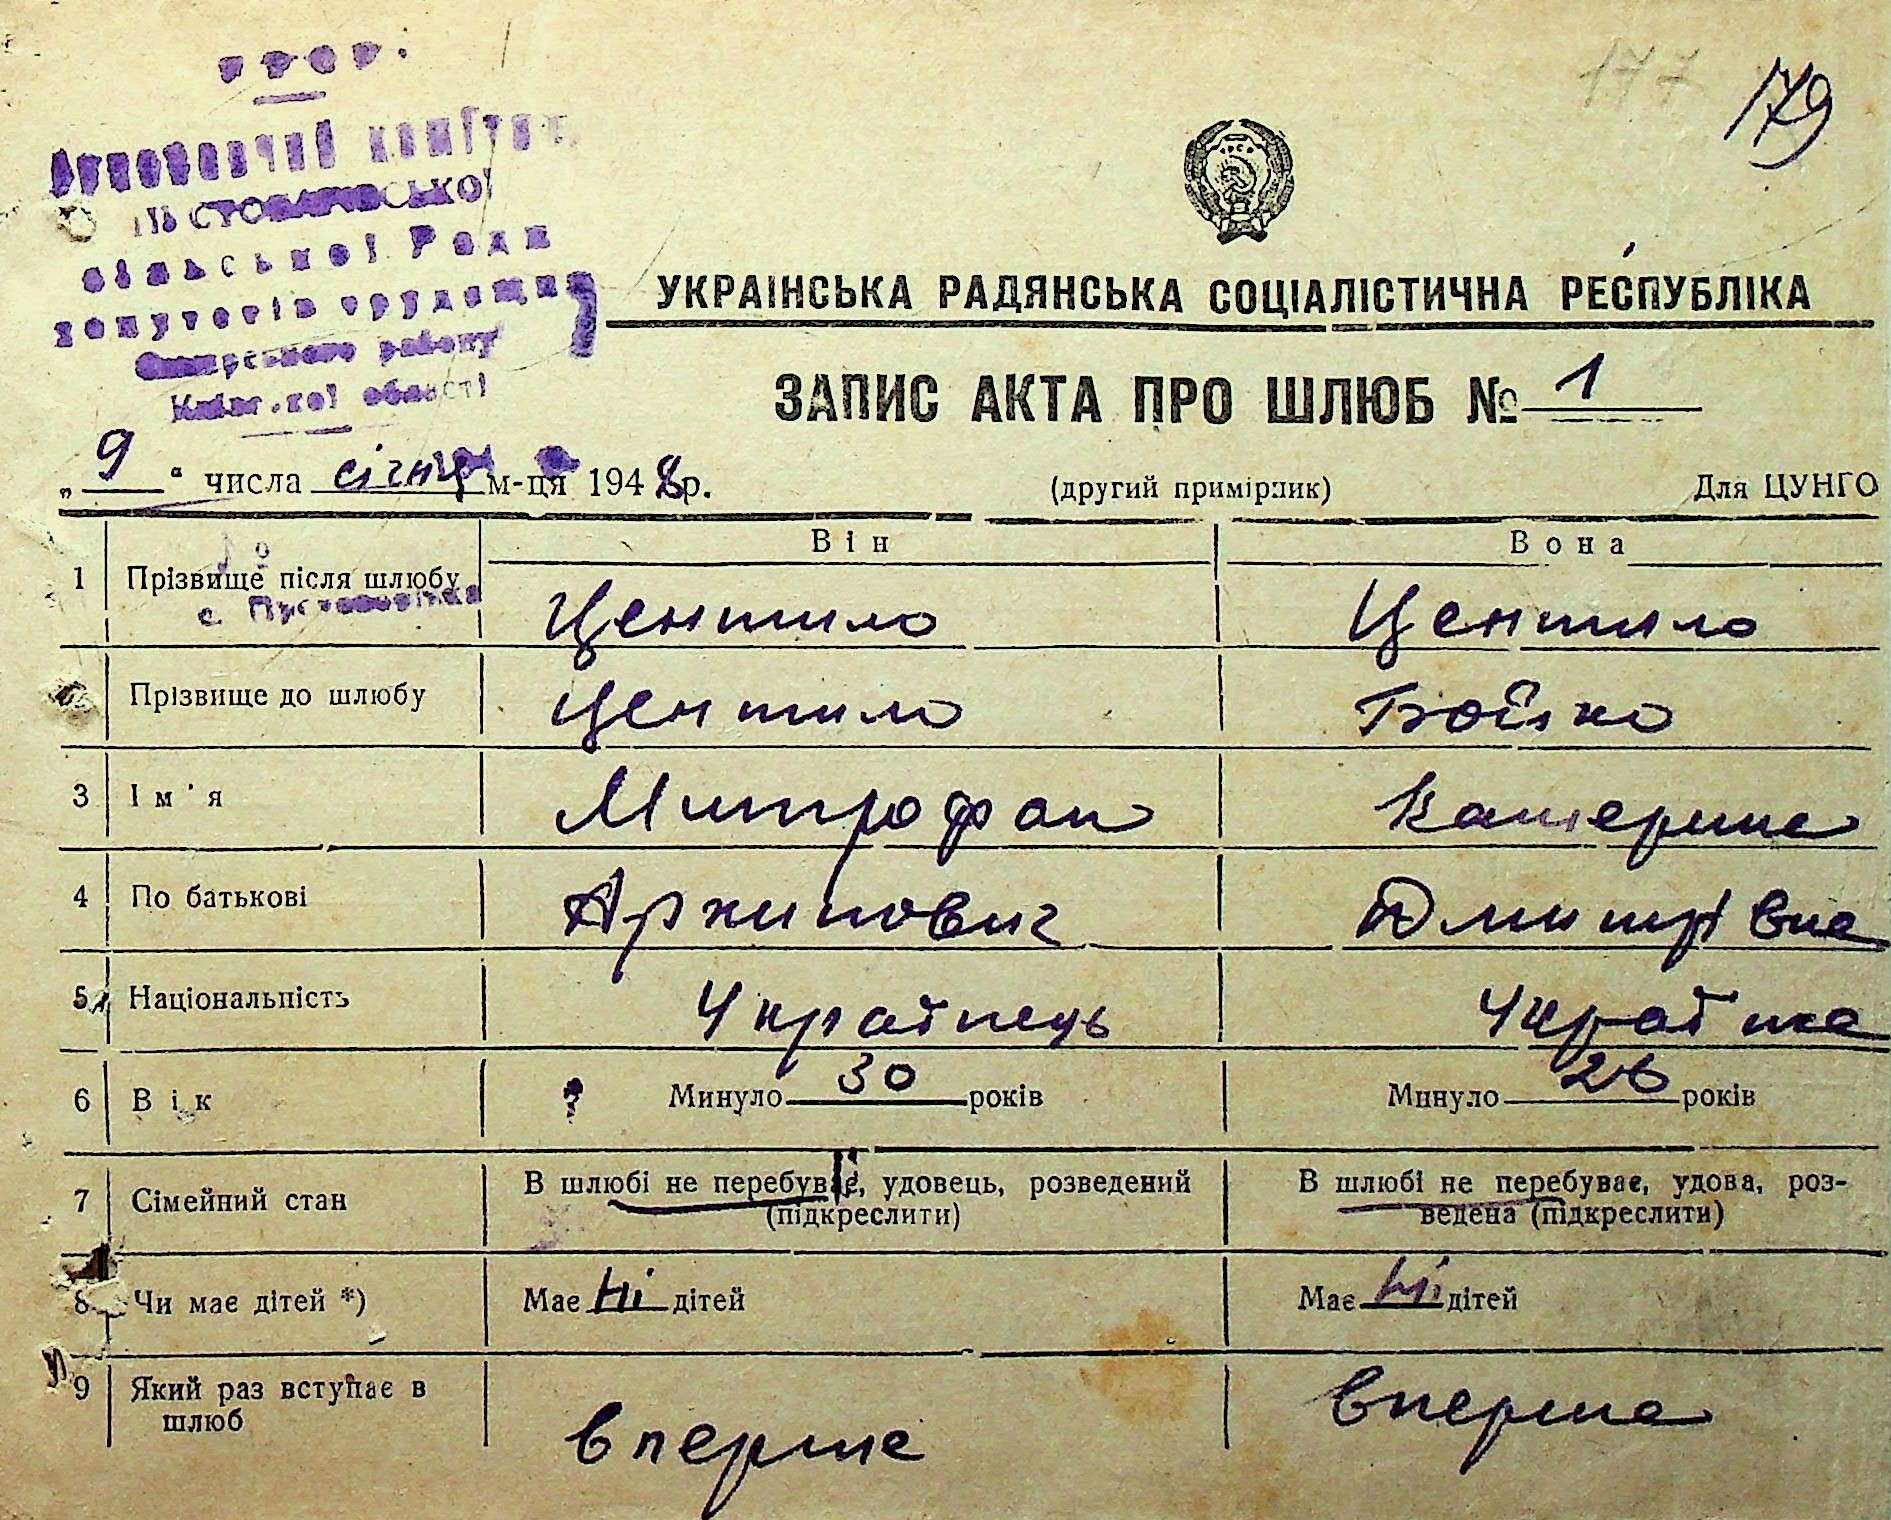 УРСР.
Виконавчий комітет
ПУСТОВАРІВСЬКОЇ
сільської Ради
депутатів трудящих
Сквирського району
Київської області
177
179
УКРАІНСЬКА РАДЯНСЬКА СОЦІАЛІСТИЧНА РЕСПУБЛІКА
ЗАПИС АКТА ПРО ШЛЮБ № 1
„ 9 “ числа січня м-ця 1948 р. (другий примірник) Для ЦУНГО
Він Вона
1 Прізвище після шлюбу Центило Центило
с. Пустоварівка
Прізвище до шлюбу Центило Бойко
3 Ім'я Митрофан Катерина
4 По батькові Архипович Дмитрівна
5 Національність Українець Українка
6 Вік Минуло 30 років Минуло 26 років
7 Сімейний стан В шлюбі не перебував, удовець, розведений (підкреслити) В шлюбі не перебуває, удова, роз-
ведена (підкреслити)
8 Чи має дітей *) Має Ні дітей Має Ні дітей
9 Який раз вступає в шлюб вперше вперше